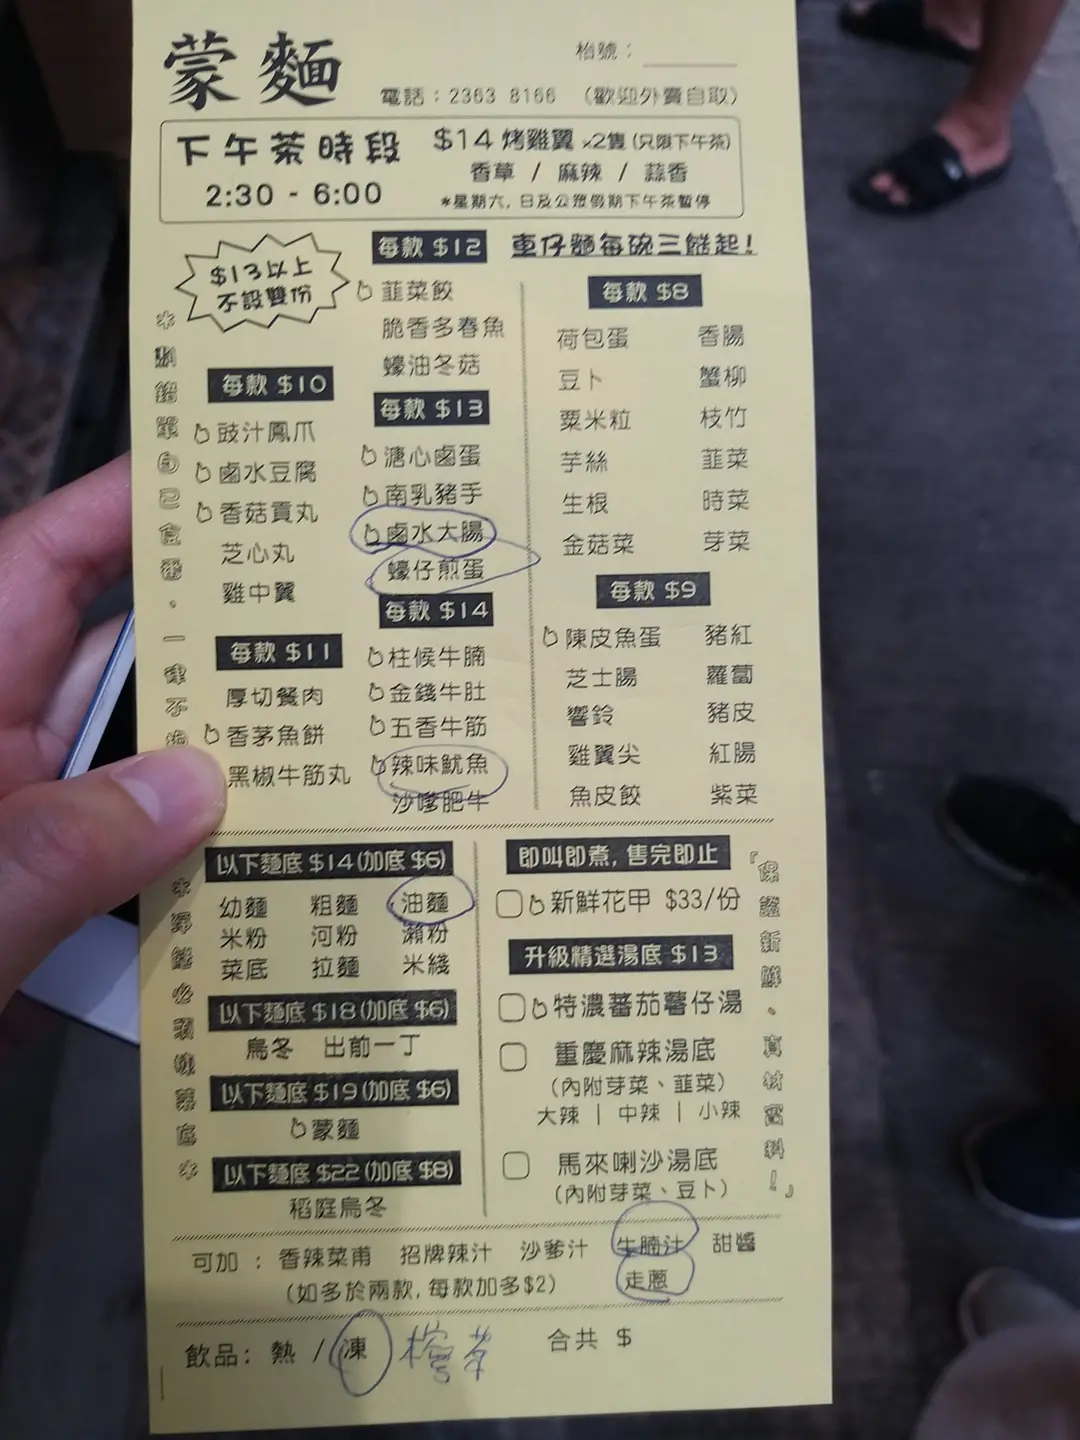 蒙麵
枱號：
電話：2363 8166 （歡迎外賣自取）
下午茶時段
2:30 - 6:00
$14 烤雞翼 ×2隻 (只限下午茶)
香草 / 麻辣 / 蒜香
*星期六, 日及公眾假期下午茶暫停
$13以上
不設雙份
車仔麵每碗三餸起!
每款 $12
韮菜餃
脆香多春魚
蠔油冬菇
每款 $10
豉汁鳳爪
鹵水豆腐
香菇貢丸
芝心丸
雞中翼
每款 $13
溏心鹵蛋
南乳豬手
鹵水大腸
蠔仔煎蛋
每款 $11
厚切餐肉
香茅魚餅
黑椒牛筋丸
每款 $14
柱候牛腩
金錢牛肚
五香牛筋
辣味魷魚
沙嗲肥牛
每款 $8
荷包蛋 香腸
豆卜 蟹柳
粟米粒 枝竹
芋絲 韮菜
生根 時菜
金菇菜 芽菜
每款 $9
陳皮魚蛋 豬紅
芝士腸 蘿蔔
響鈴 豬皮
雞翼尖 紅腸
魚皮餃 紫菜
以下麵底 $14(加底 $6)
幼麵 粗麵 油麵
米粉 河粉 瀨粉
菜底 拉麵 米綫
以下麵底 $18(加底 $6)
烏冬 出前一丁
以下麵底 $19(加底 $6)
蒙麵
以下麵底 $22(加底 $8)
稻庭烏冬
即叫即煮, 售完即止
新鮮花甲 $33/份
升級精選湯底 $13
特濃蕃茄薯仔湯
重慶麻辣湯底
（內附芽菜、韮菜）
大辣 | 中辣 | 小辣
馬來喇沙湯底
（內附芽菜、豆卜）
「保證新鮮。真材實料！」
可加 ： 香辣菜甫 招牌辣汁 沙爹汁 牛腩汁 甜醬
（如多於兩款, 每款加多$2） 走蔥
飲品: 熱 / 凍 檸茶 合共 $